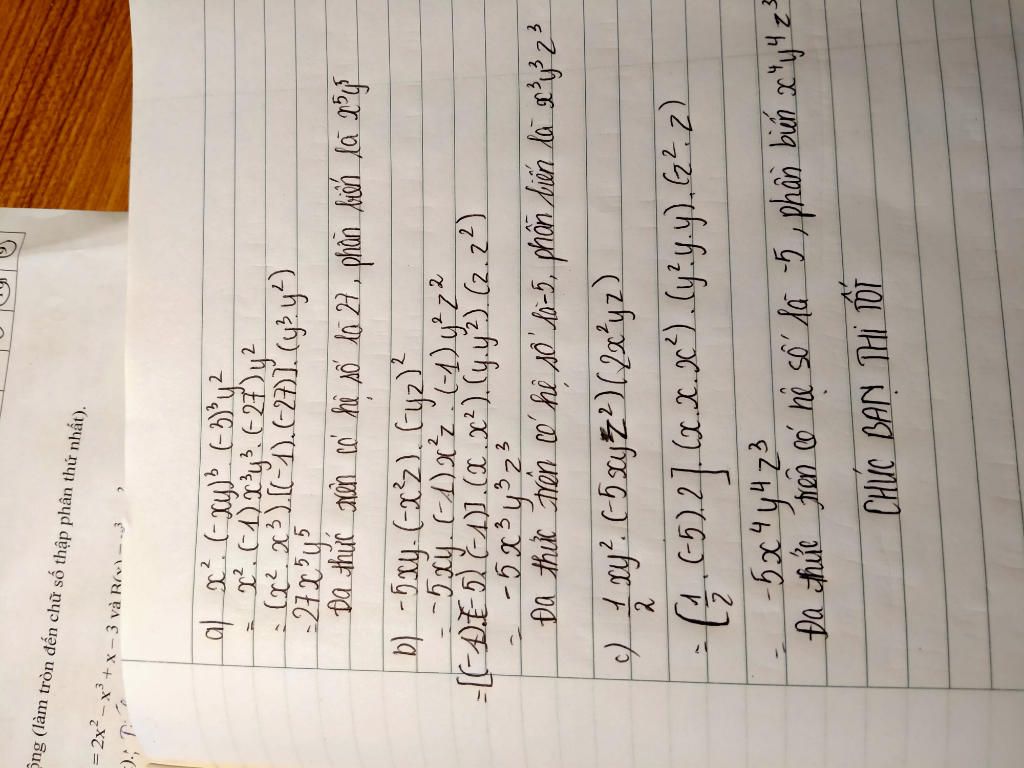 ộng (làm tròn đến chữ số thập phân thứ nhất).
= 2x² − x³ + x − 3 và
a) x² . (-xy)³ . (-3)³y²
= x² . (-1)x³y³ . (-27)y²
= (x² . x³)[(-1) . (-27)] . (y³ . y²)
= 27x⁵y⁵
Đa thức trên có hệ số là 27, phần biến là x⁵y⁵
b) -5xy . (-x²z) . (-yz)²
= -5xy . (-1)x²z . (-1)y²z²
= [(-1)(-5)(-1)] . (x . x²) . (y y²) . (z . z²)
= -5x³y³z³
Đa thức trên có hệ số là -5, phần biến là x³y³z³
c) 1/2 xy² . (-5xyz²)(2x²yz)
= [1/2 . (-5) . 2] (x . x . x²) . (y² y y) . (z² . z)
= -5x⁴y⁴z³
Đa thức trên có hệ số là -5, phần biến x⁴y⁴z³
CHÚC BẠN THI TỐT